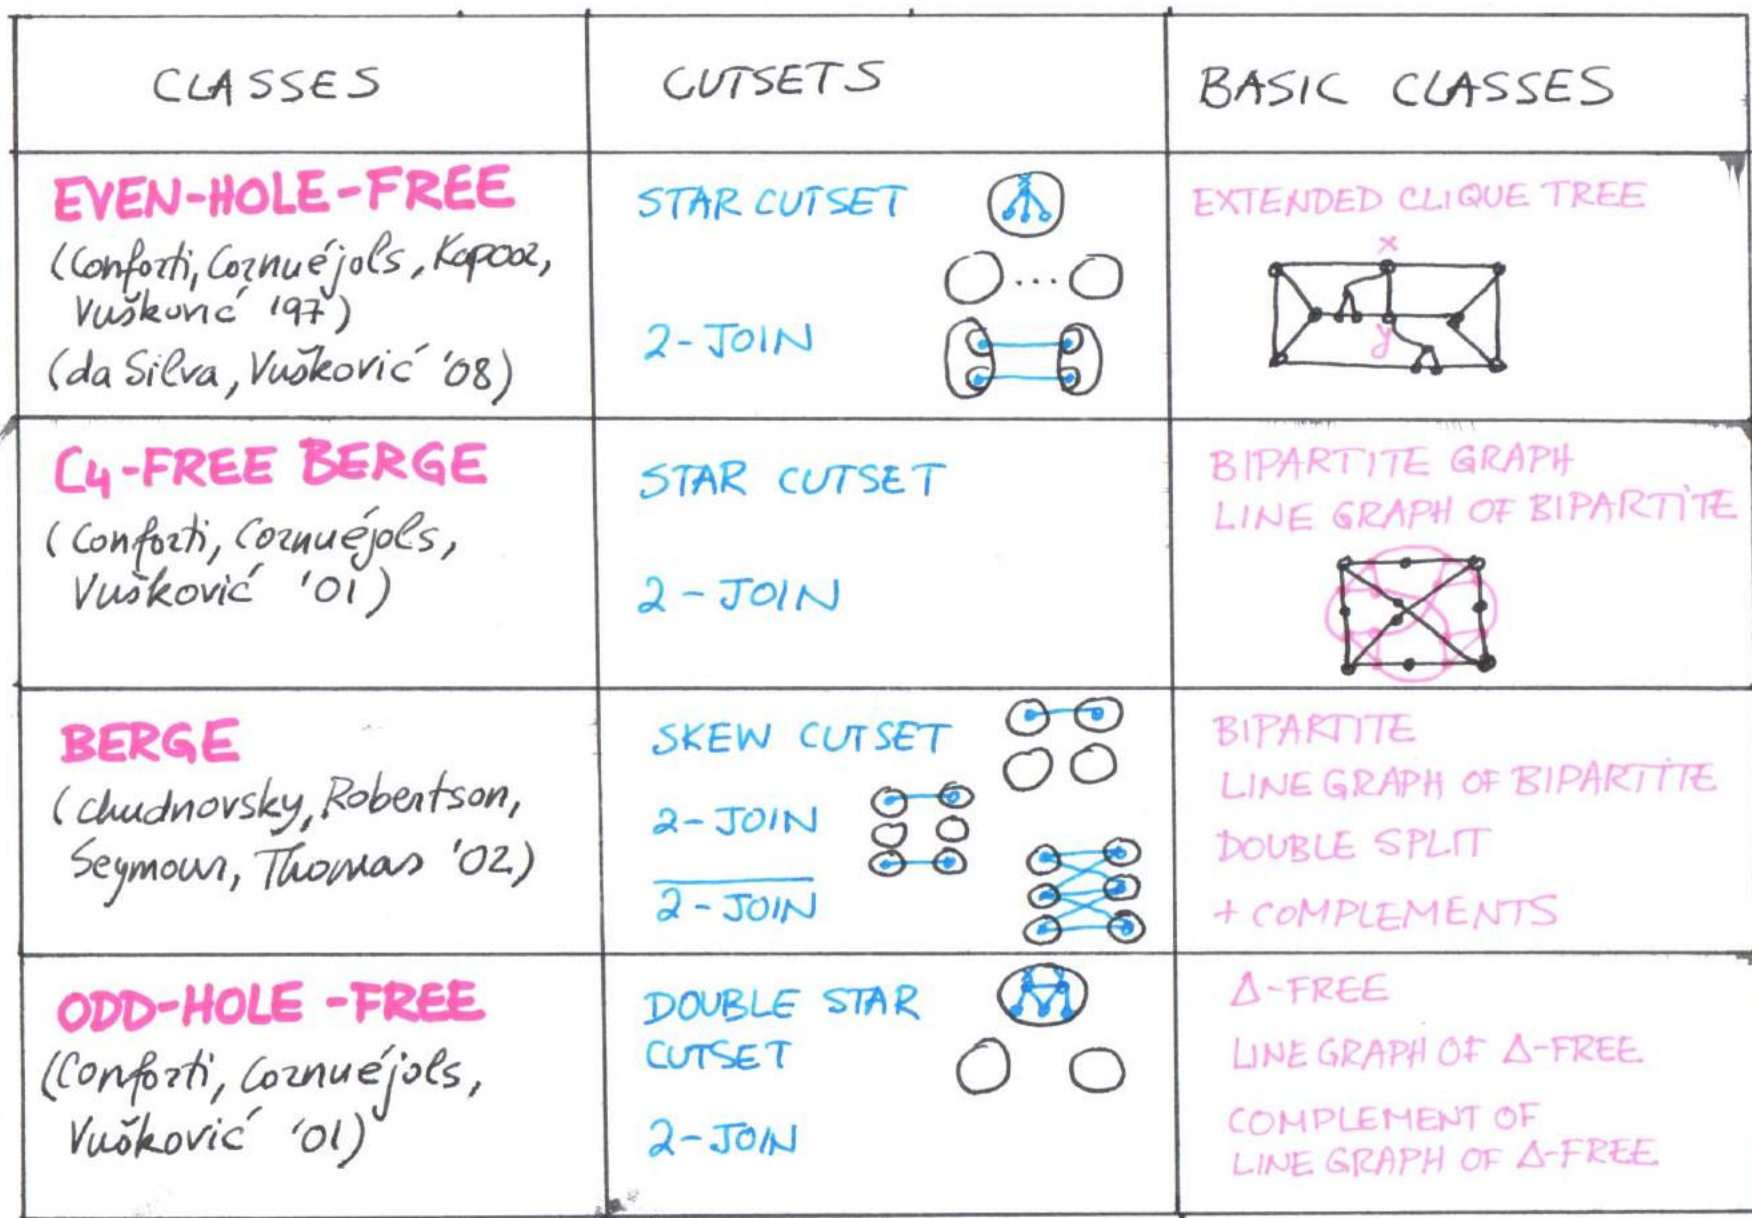 CLASSES
CUTSETS
BASIC CLASSES
EVEN-HOLE-FREE
(Conforti, Cornuéjols, Kapoor,
Vušković '97)
(da Silva, Vušković '08)
STAR CUTSET
2-JOIN
EXTENDED CLIQUE TREE
x
y
C4-FREE BERGE
(Conforti, Cornuéjols,
Vušković '01)
STAR CUTSET
2-JOIN
BIPARTITE GRAPH
LINE GRAPH OF BIPARTITE
BERGE
(Chudnovsky, Robertson,
Seymour, Thomas '02)
SKEW CUTSET
2-JOIN
2-JOIN
BIPARTITE
LINE GRAPH OF BIPARTITE
DOUBLE SPLIT
+ COMPLEMENTS
ODD-HOLE-FREE
(Conforti, Cornuéjols,
Vušković '01)
DOUBLE STAR
CUTSET
2-JOIN
Δ-FREE
LINE GRAPH OF Δ-FREE
COMPLEMENT OF
LINE GRAPH OF Δ-FREE